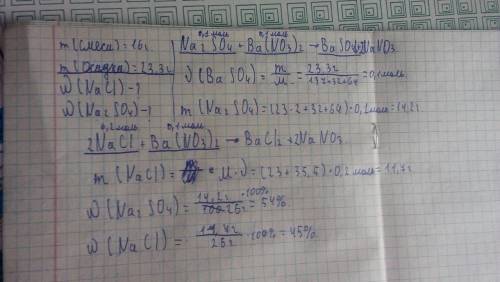 m(смеси)=16г
m(осадка)=23.3г
ω(NaCl)-?
ω(Na₂SO₄)-?
0,1 моль 0,1 моль
Na₂SO₄ + Ba(NO₃)₂ → BaSO₄ + 2NaNO₃
ν(BaSO₄) = m/M = 23.3г/137+32+64 = 0,1 моль
m(Na₂SO₄) = (23·2+32+64)·0,1 моль = 14,2г.
0,2 моль 0,1 моль
2NaCl + Ba(NO₃)₂ → BaCl₂ + 2NaNO₃.
m(NaCl) = M·ν = (23+35,5)·0,2 моль = 11,7г
ω(Na₂SO₄) = 14,2г/26г ·100% = 54%
ω(NaCl) = 11,7г/26г ·100% = 45%